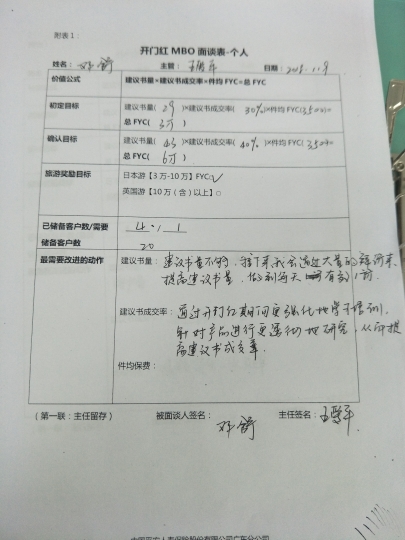 附表1：
开门红 MBO 面谈表-个人
姓名： 邓 主管： 王 日期：
价值公式 建议书量×建议书成交率×件均FYC=总FYC
初定目标 建议书量( 29 )×建议书成交率( 30% )×件均FYC(3500)=
总FYC( 3万 )
确认目标 建议书量( 43 )×建议书成交率( 40% )×件均FYC( 3500 )=
总FYC( 6万 )
旅游奖励目标 日本游【3万-10万】FYC
英国游【10万（含）以上】○
已储备客户数/需要
储备客户数
20
最需要改进的动作 建议书量： 建议书量不够，接下来我会通过大量的
提高建议书量，做到每天
建议书成交率： 通过开门红期间更强化地学习培训，
针对产品进行更 地研究，从而提
高建议书成交率。
件均保费：
（第一联：主任留存） 被面谈人签名： 邓 主任签名： 王
中国平安人寿保险股份有限公司广东分公司